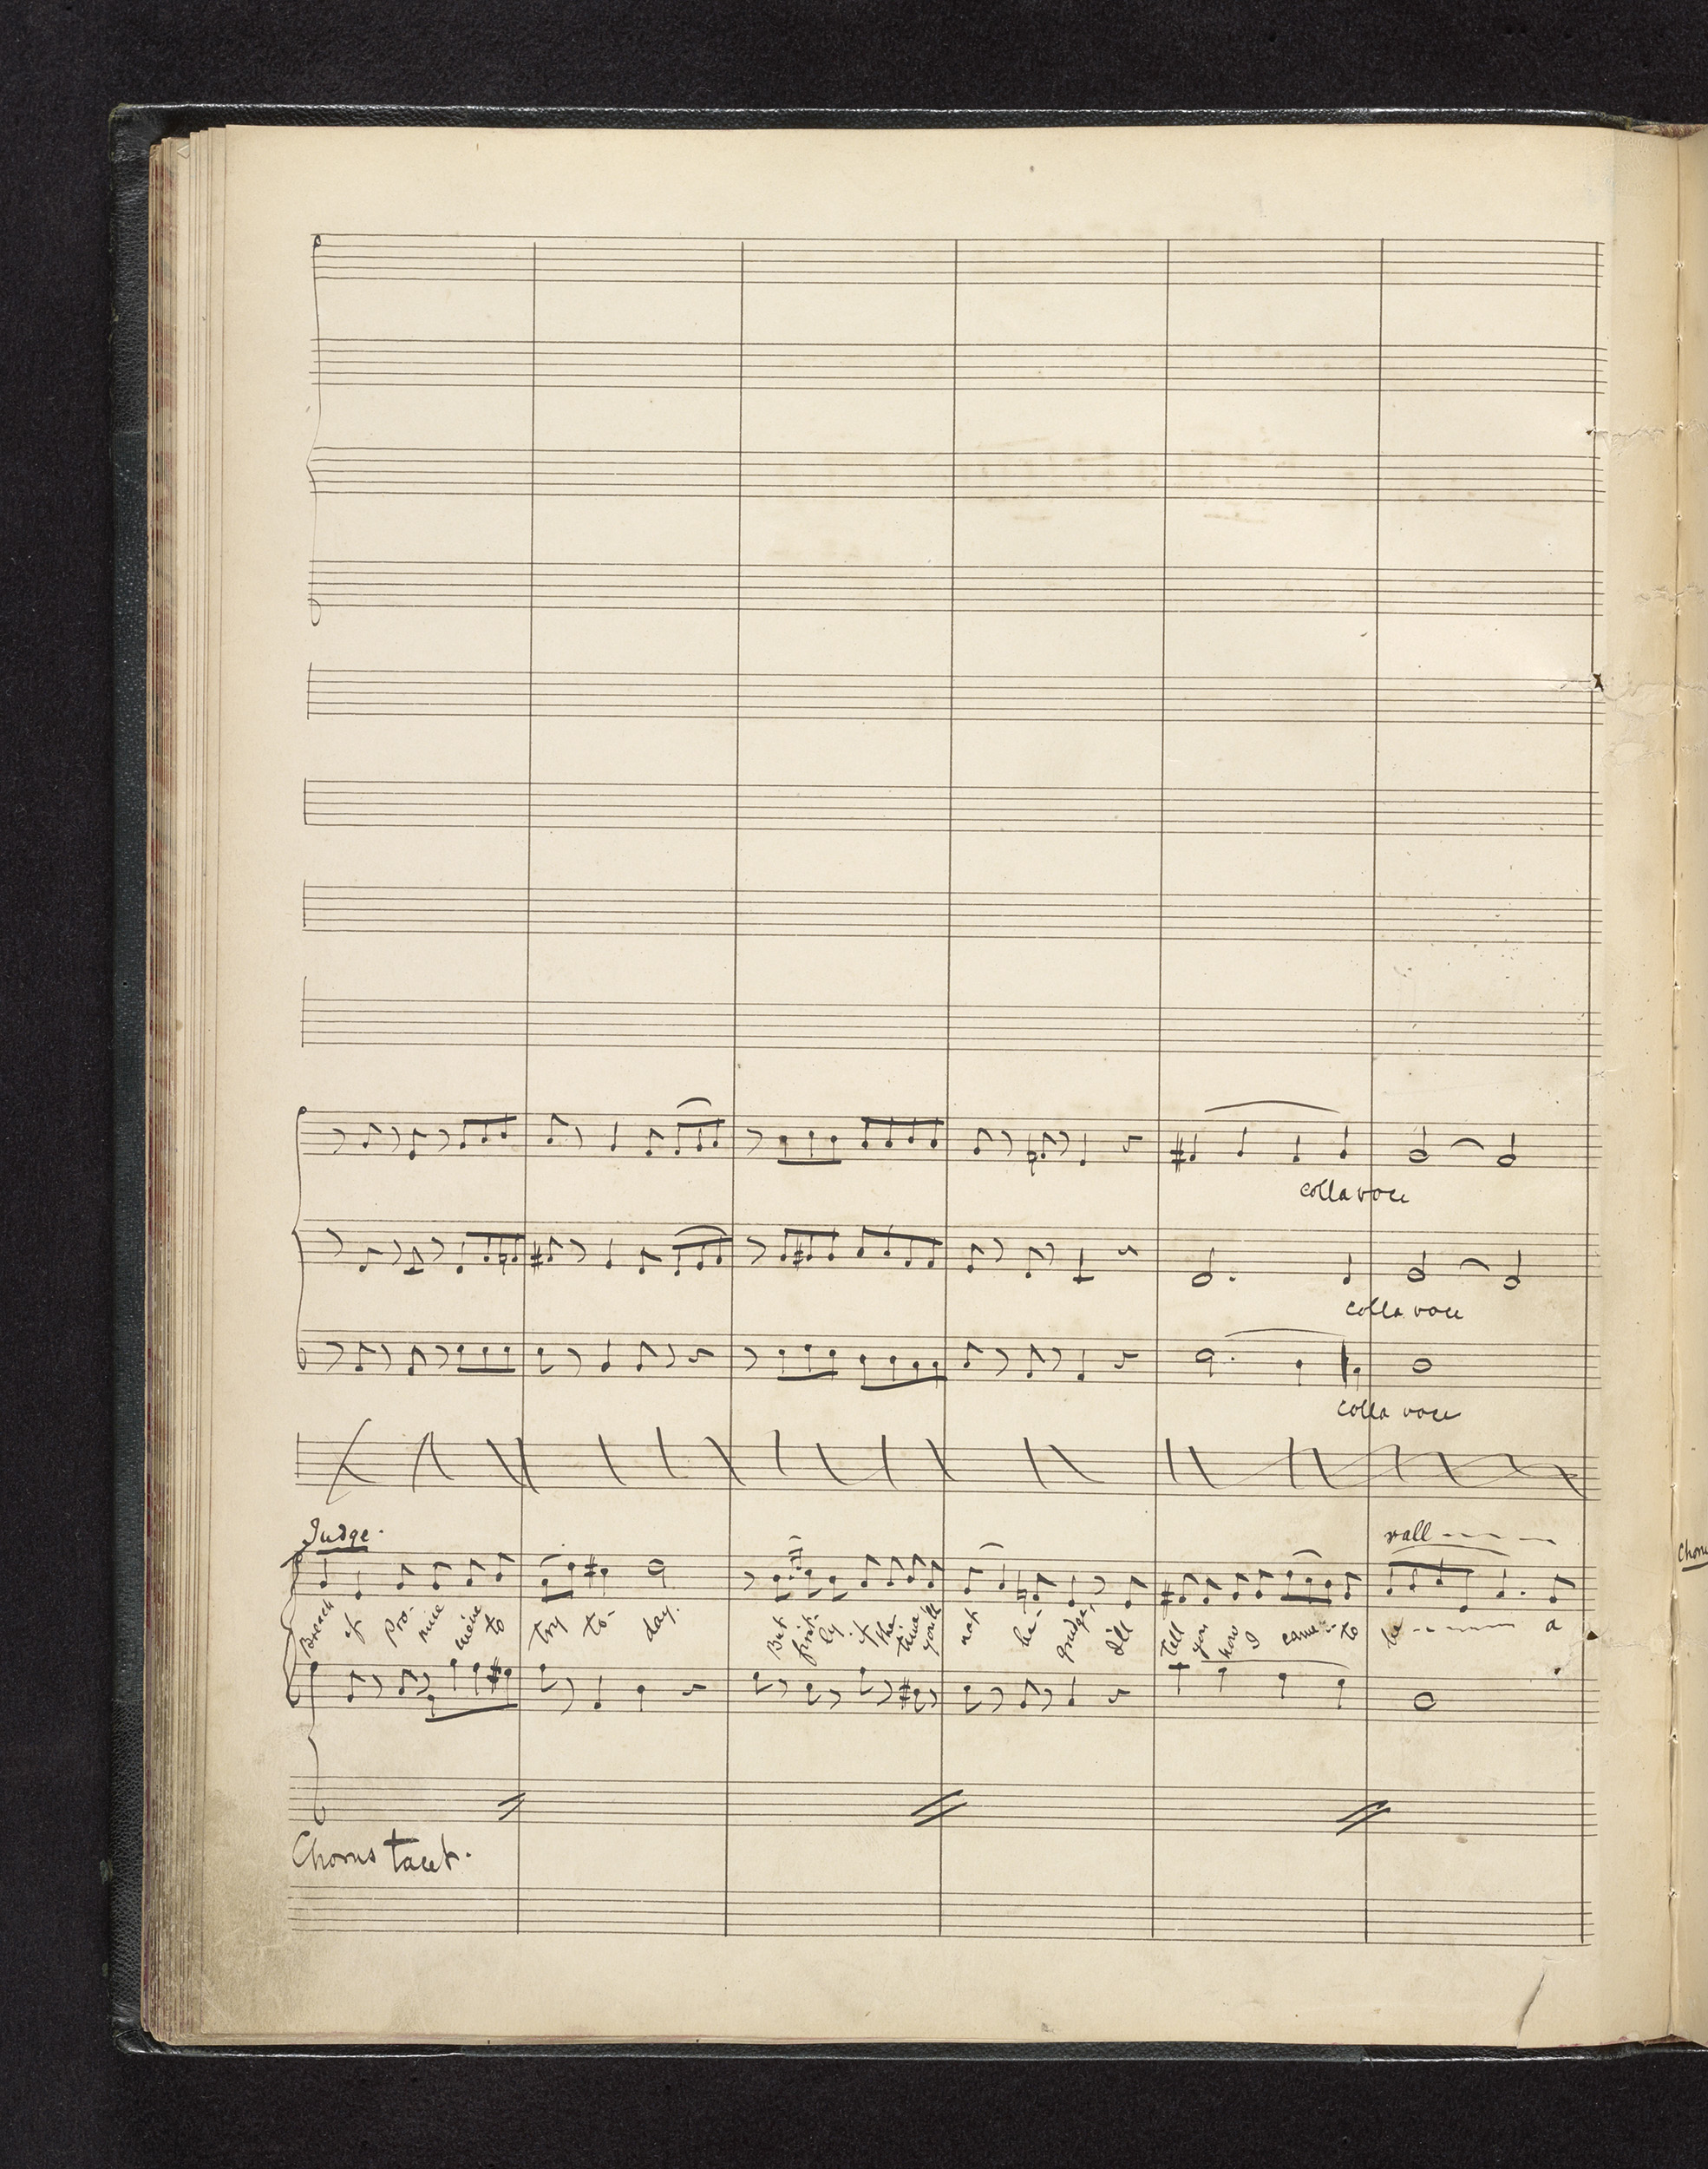 colla voce
colla voce
colla voce
Judge.
rall
Breach of Pro- mise we're to try to- day. But first- ly if the time you'll not be- grudge, I'll tell you how I came to be a
Chorus tacet.